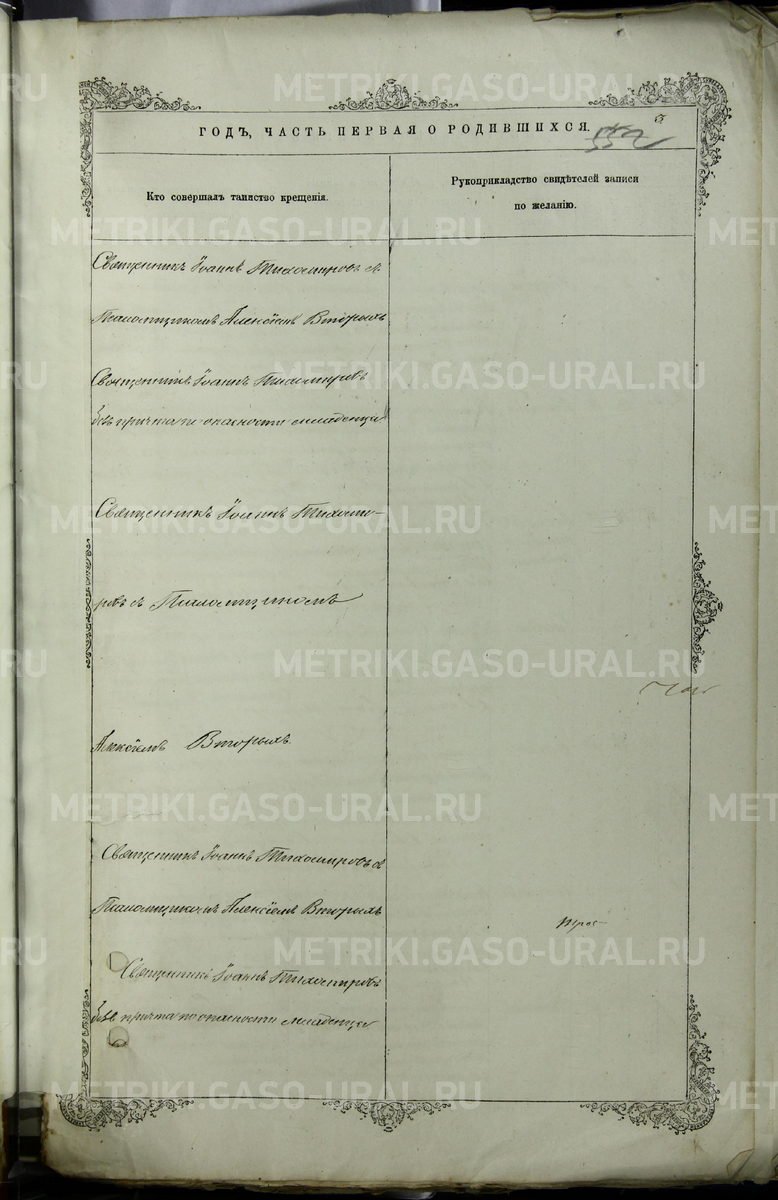 ГОДЪ, ЧАСТЬ ПЕРВАЯ О РОДИВШИХСЯ.
Кто совершалъ таинство крещенія.
Рукоприкладство свидѣтелей записи
по желанію.
Священникъ Іоаннъ Тихомировъ съ
Псаломщикомъ Алексѣемъ Вторыхъ
Священникъ Іоаннъ Тихомировъ
безъ причта по опасности младенца
Священникъ Іоаннъ Тихоми-
ровъ съ Псаломщикомъ
Алексѣемъ Вторыхъ.
Священникъ Іоаннъ Тихомировъ съ
Псаломщикомъ Алексѣемъ Вторыхъ
Священникъ Іоаннъ Тихомировъ
безъ причта по опасности младенца
METRIKI.GASO-URAL.RU